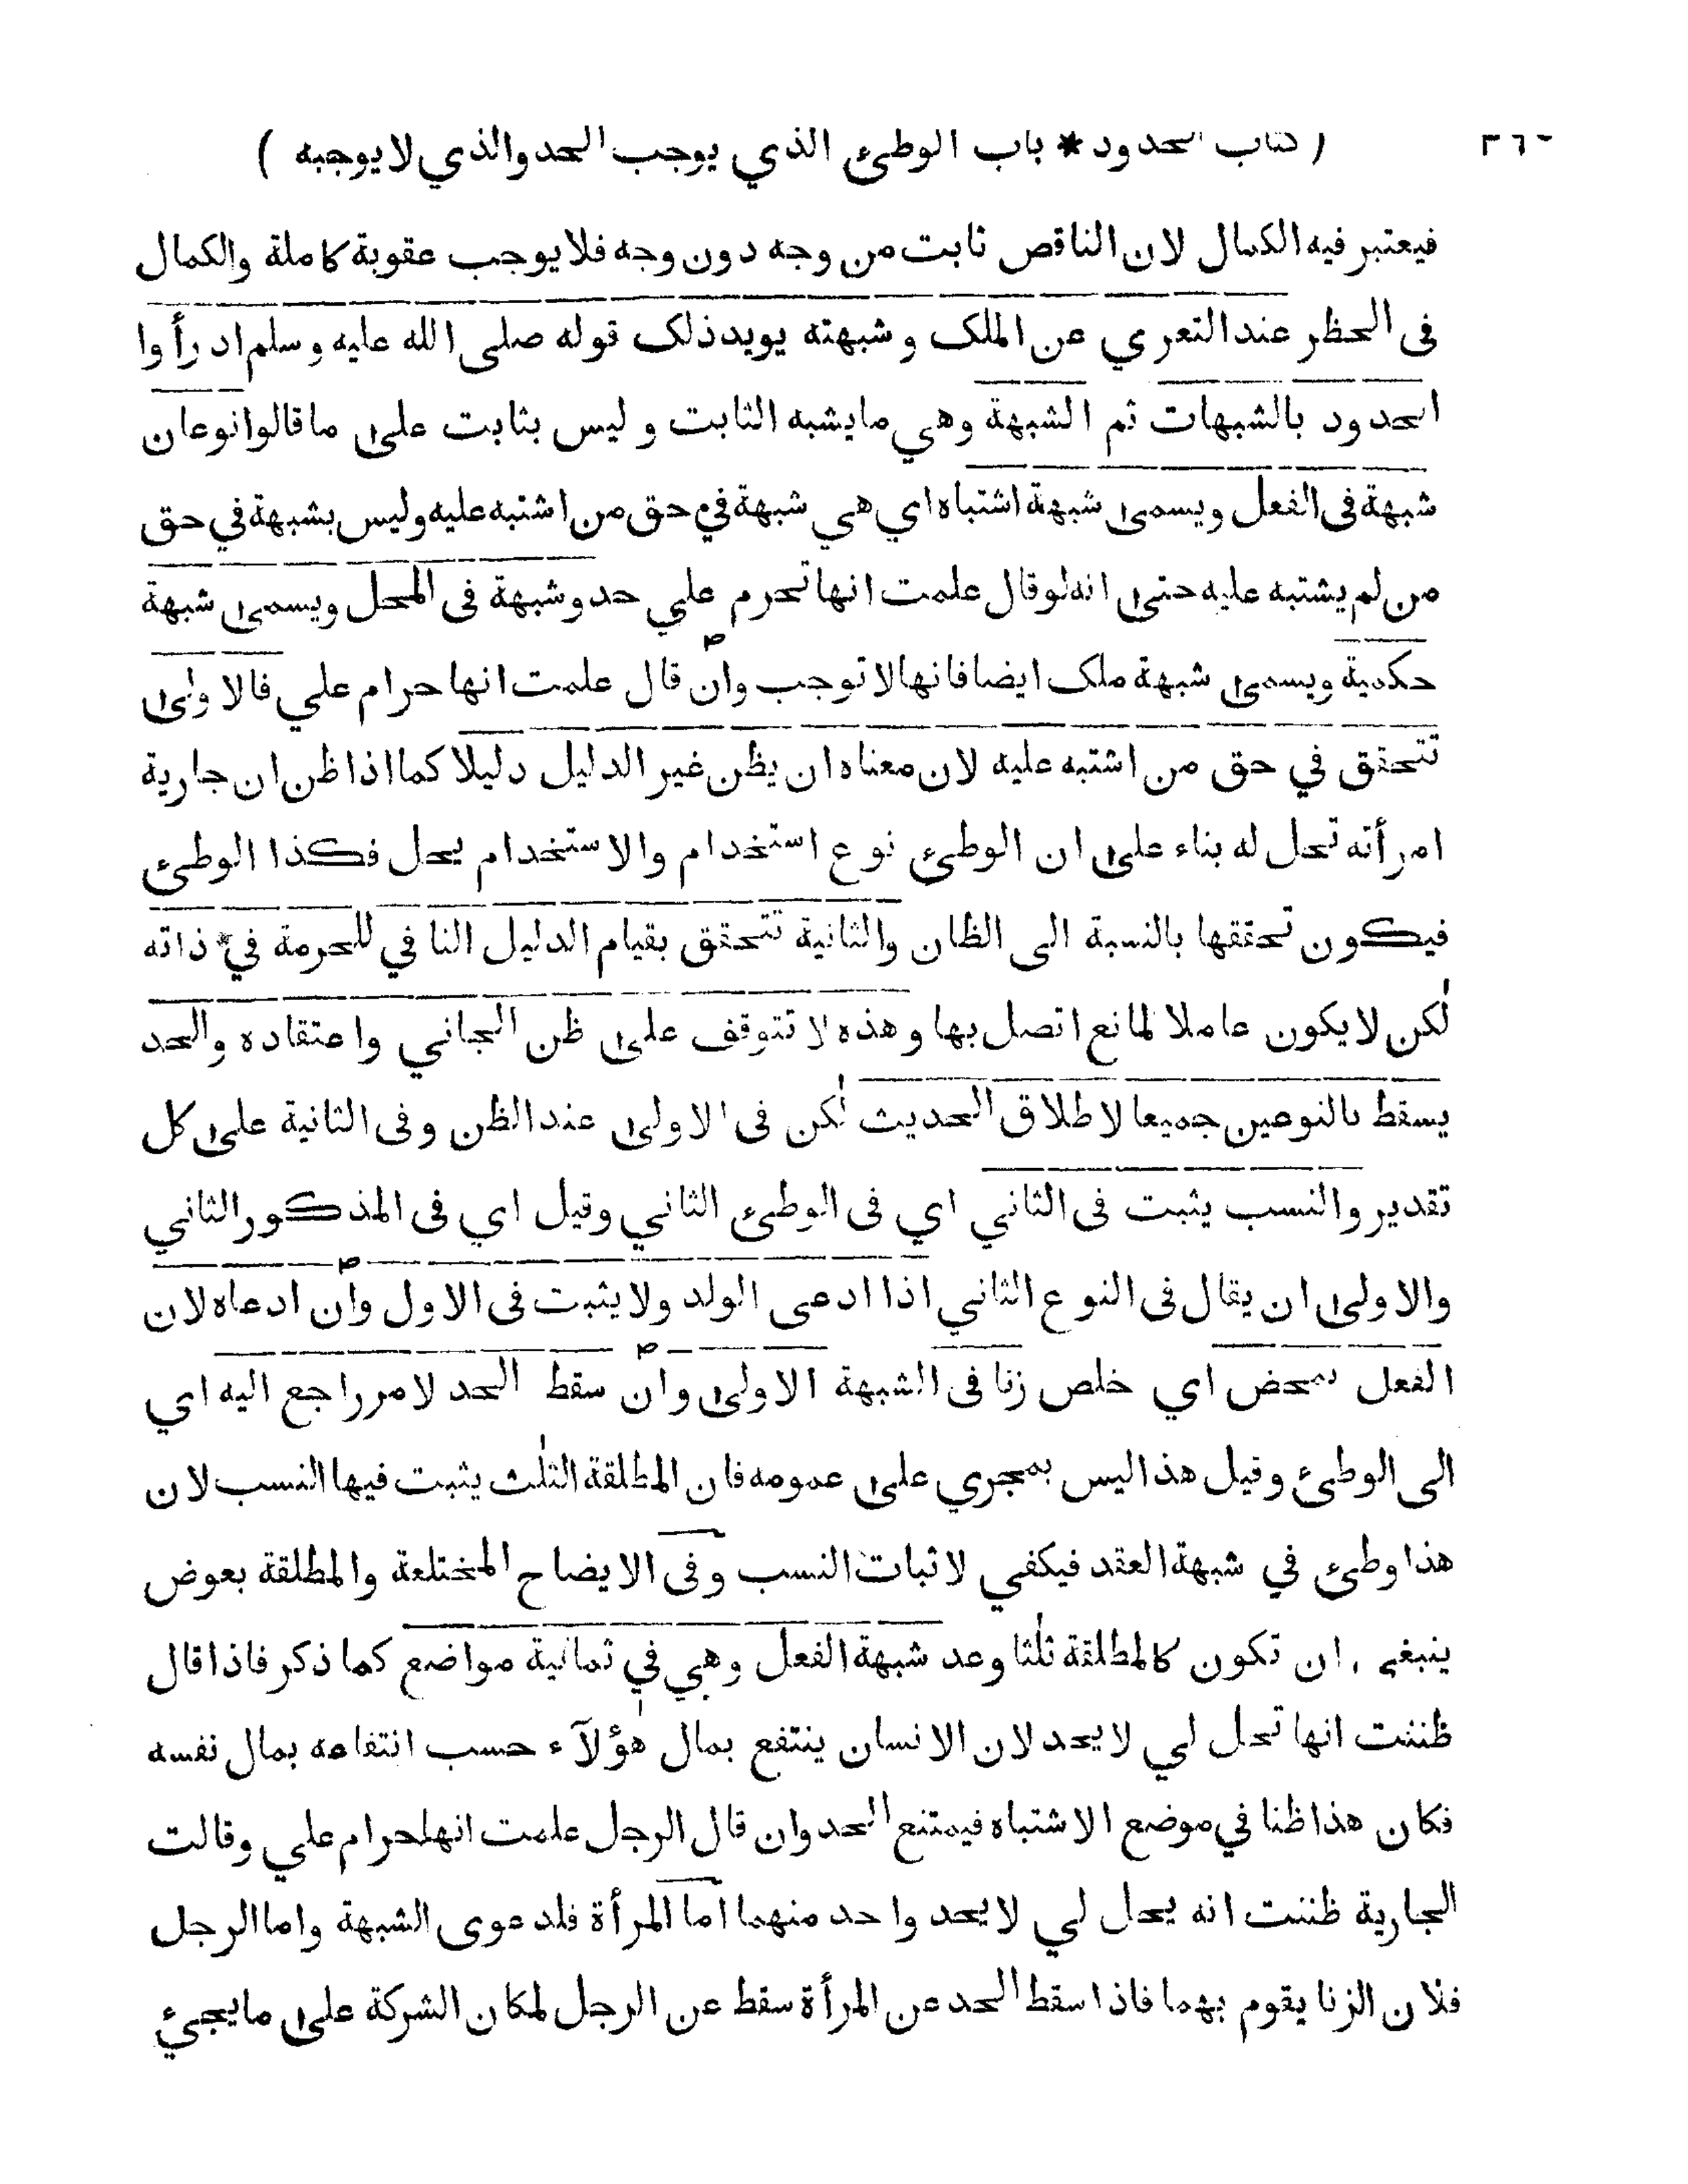 ( كتاب الحدود * باب الوطئ الذي يوجب الحد والذي لا يوجبه ) ٣٦٠
فيعتبر فيه الكمال لان الناقص ثابت من وجه دون وجه فلا يوجب عقوبة كاملة والكمال
فى الحظر عند التعري عن الملك وشبهته يويد ذلك قوله صلى الله عليه وسلم ادرأوا
الحدود بالشبهات ثم الشبهة وهي ما يشبه الثابت وليس بثابت على ما قالوا نوعان
شبهة فى الفعل ويسمى شبهة اشتباه اي هي شبهة في حق من اشتبه عليه وليس بشبهة في حق
من لم يشتبه عليه حتى انه لو قال علمت انها تحرم علي حد وشبهة فى المحل ويسمى شبهة
حكمية ويسمى شبهة ملك ايضا فانها لا توجب وان قال علمت انها حرام علي فالاولى
تتحقق في حق من اشتبه عليه لان معناه ان يظن غير الدليل دليلا كما اذا ظن ان جارية
امرأته تحل له بناء على ان الوطئ نوع استخدام والاستخدام يحل فكذا الوطئ
فيكون تحققها بالنسبة الى الظان والثانية تتحقق بقيام الدليل النافي للحرمة في ذاته
لكن لا يكون عاملا لمانع اتصل بها وهذه لا تتوقف على ظن الجاني واعتقاده والحد
يسقط بالنوعين جميعا لاطلاق الحديث لكن فى الاولى عند الظن وفى الثانية على كل
تقدير والنسب يثبت فى الثاني اي فى الوطئ الثاني وقيل اي فى المذكور الثاني
والاولى ان يقال فى النوع الثاني اذا ادعى الولد ولا يثبت فى الاول وان ادعاه لان
الفعل تمحض اي خلص زنا فى الشبهة الاولى وان سقط الحد لامر راجع اليه اي
الى الوطئ وقيل هذا ليس بمجري على عمومه فان المطلقة الثلث يثبت فيها النسب لان
هذا وطئ في شبهة العقد فيكفي لاثبات النسب وفى الايضاح المختلعة والمطلقة بعوض
ينبغي ان تكون كالمطلقة ثلثا وعد شبهة الفعل وهي في ثمانية مواضع كما ذكر فاذا قال
ظننت انها تحل لي لا يحد لان الانسان ينتفع بمال هؤلآء حسب انتفاعه بمال نفسه
فكان هذا ظنا في موضع الاشتباه فيمتنع الحد وان قال الرجل علمت انها حرام علي وقالت
الجارية ظننت انه يحل لي لا يحد واحد منهما اما المرأة فلدعوى الشبهة واما الرجل
فلان الزنا يقوم بهما فاذا سقط الحد عن المرأة سقط عن الرجل لمكان الشركة على ما يجيئ